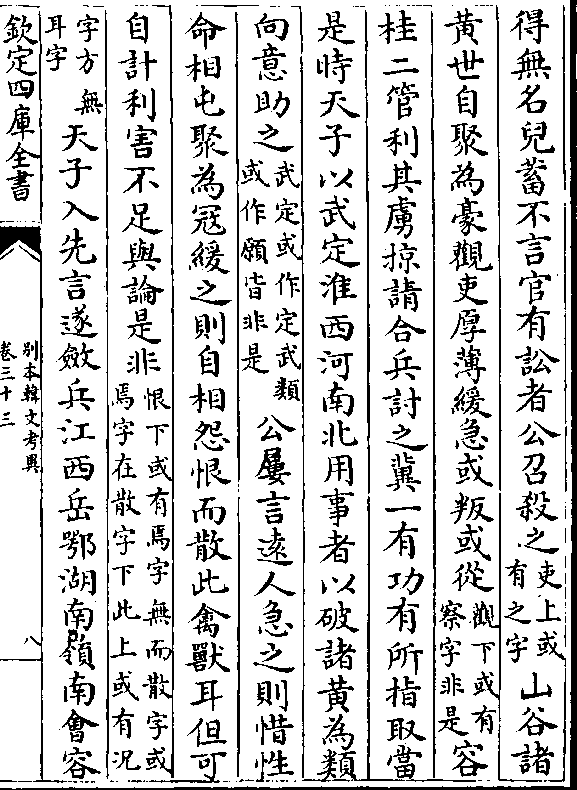 得無名兒蓄不言官有訟者公召殺之吏上或有之字山谷諸
黄世自聚為豪觀吏厚薄緩急或叛或從觀下或有察字非是容
桂二管利其虜掠請合兵討之冀一有功有所指取當
是時天子以武定淮西河南北用事者以破諸黄為類
向意助之武定或作定武類或作願皆非是公屢言逺人急之則惜性
命相屯聚為冦緩之則自相怨恨而散此禽獸耳但可
自計利害不足與論是非恨下或有焉字無而散字或焉字在散字下此上或有况
字方無耳字天子入先言遂斂兵江西岳鄂湖南嶺南㑹容
欽定四庫全書
别本韓文考異
卷三十三
八